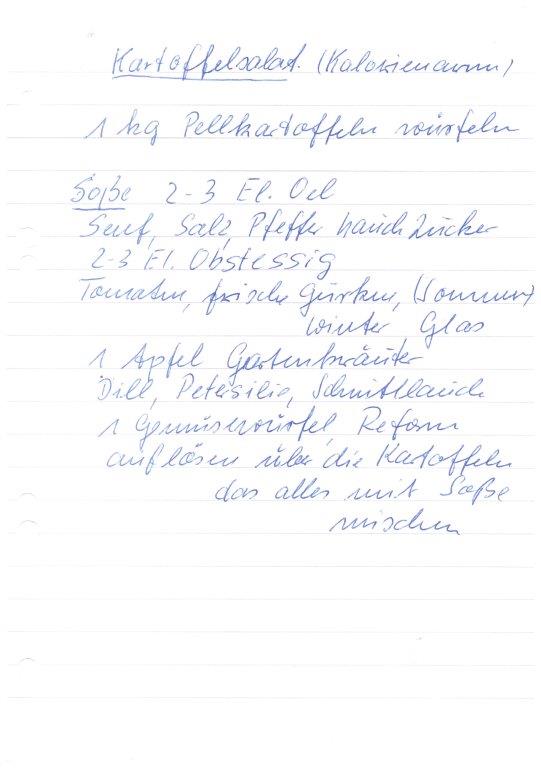 Kartoffelsalat. (Kalorienarm)
1 kg Pellkartoffeln würfeln
Soße 2-3 El. Oel
Senf, Salz, Pfeffer hauch Zucker
2-3 El. Obstessig
Tomaten, frische Gurken, (Sommer)
winter Glas
1 Apfel Gartenkräuter
Dill, Petersilie, Schnittlauch
1 Gemüsewürfel, Reform
auflösen über die Kartoffeln
das alles mit Soße
mischen